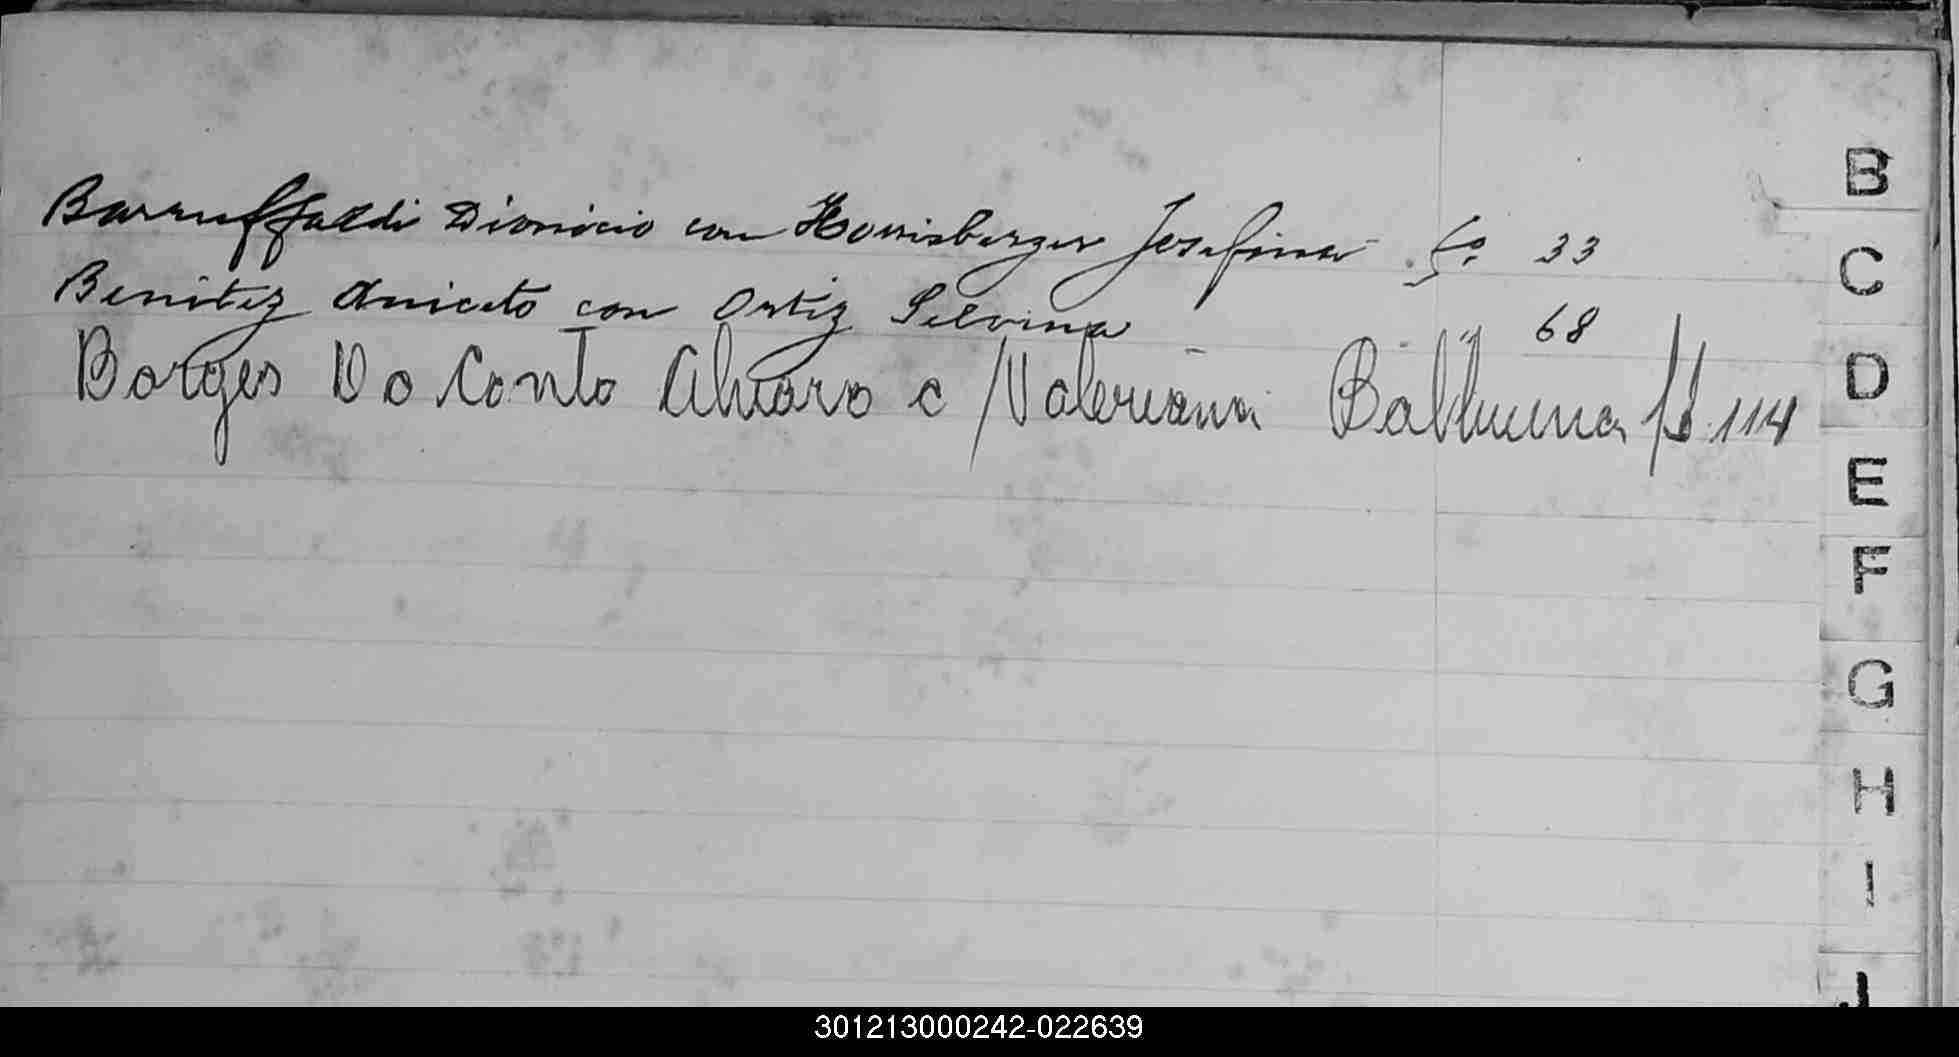 Barruffaldi Dionicio con Honisberger Josefina fo. 33
Benitez Aniceto con Ortiz Selvina 68
Borges Do Conto Alvaro c/ Valeriana Balbuena fs. 114
B
C
D
E
F
G
H
I
J
301213000242-022639